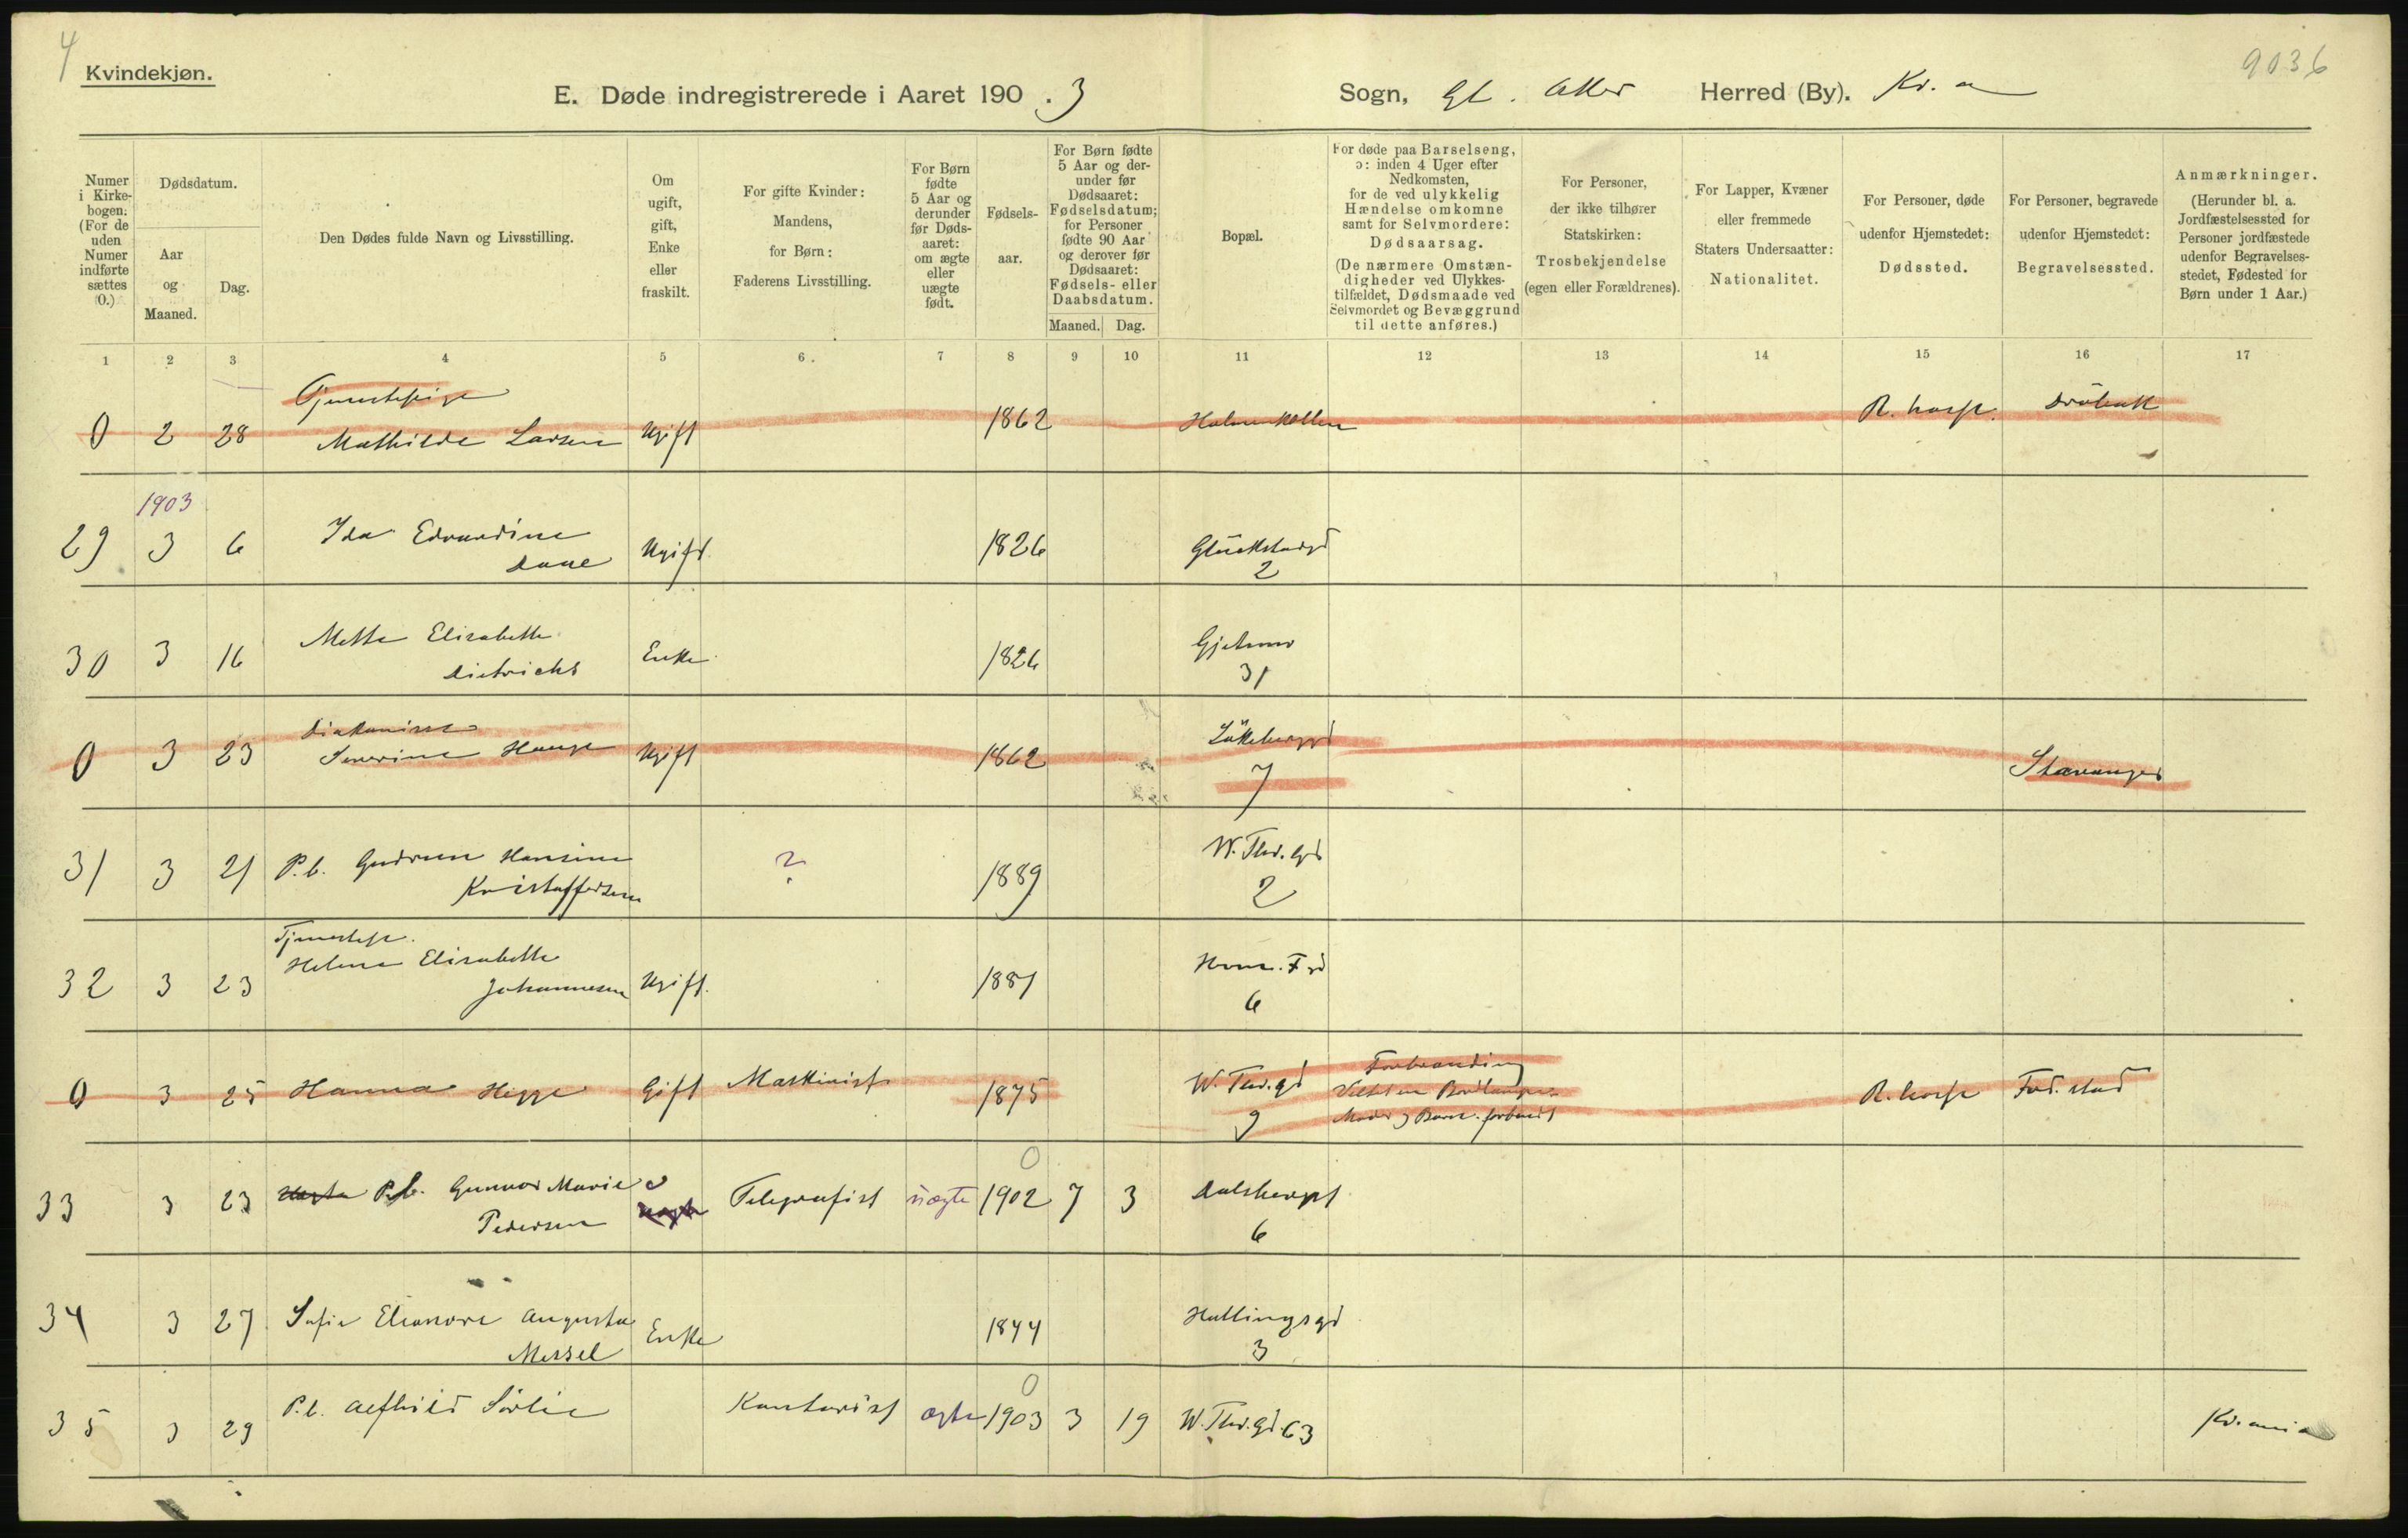 4
Kvindekjøn.
9036
E. Døde indregistrerede i Aaret 190 . 3
Sogn, Gl. Aker
Herred (By). Kr. a
Numer
i Kirke-
bogen.
(For de
uden
Numer
indførte
sættes
0.)
Dødsdatum.
Aar
og
Maaned.
Dag.
Den Dødes fulde Navn og Livsstilling.
Om
ugift,
gift,
Enke
eller
fraskilt.
For gifte Kvinder:
Mandens,
for Børn:
Faderens Livsstilling.
For Børn
fødte
5 Aar og
derunder
før Døds-
aaret:
om ægte
eller
uægte
født.
Fødsels-
aar.
For Børn fødte
5 Aar og der-
under før
Dødsaaret:
Fødselsdatum;
for Personer
fødte 90 Aar
og derover før
Dødsaaret:
Fødsels- eller
Daabsdatum.
Maaned. Dag.
Bopæl.
For døde paa Barselseng,
ɔ: inden 4 Uger efter
Nedkomsten,
for de ved ulykkelig
Hændelse omkomne
samt for Selvmordere:
Dødsaarsag.
(De nærmere Omstæn-
digheder ved Ulykkes-
tilfældet, Dødsmaade ved
Selvmordet og Bevæggrund
til dette anføres.)
For Personer,
der ikke tilhører
Statskirken:
Trosbekjendelse
(egen eller Forældrenes).
For Lapper, Kvæner
eller fremmede
Staters Undersaatter:
Nationalitet.
For Personer, døde
udenfor Hjemstedet:
Dødssted.
For Personer, begravede
udenfor Hjemstedet:
Begravelsessted.
Anmærkninger.
(Herunder bl. a.
Jordfæstelsessted for
Personer jordfæstede
udenfor Begravelses-
stedet, Fødested for
Børn under 1 Aar.)
1 2 3 4 5 6. 7 8 9 10 11 12 13 14 15 16 17
Tjenestepige
0 2 28 Mathilde Larsen Ugift 1862 Holmenkollen R. hosp. Drøbak
1903
29 3 6 Ida Edvardine Ugift 1826
2
30 3 16 Mette Elisabeth Enke 1826
Dietrichs 31
Diakonisse
0 3 23 Severine Hauge Ugift 1862 Stavanger
7
31 3 21 P.b. Gudrun Hansine ? 1889 W. Thr. Gd
Kristoffersen 2
Tjenestep.
32 3 23 Helene Elisabeth Ugift. 1881
Johannesen 6
Forbrænding
0 3 25 Hanna Gift Maskinist 1875 W. Thr. gd R. hosp Fred. stad
9
0
33 3 23 P.b. Gunvor Marie Telegrafist uægte 1902 7 3 Dalsbergst
Pedersen 6
34 3 27 Sofie Eleonore Augusta Enke 1844 Hallingsgd
Messel 3
0
35 3 29 P.b. Alfhild Sørlie Kontorist ægte 1903 3 19 W. Thr. gd. 63 Kr.ania